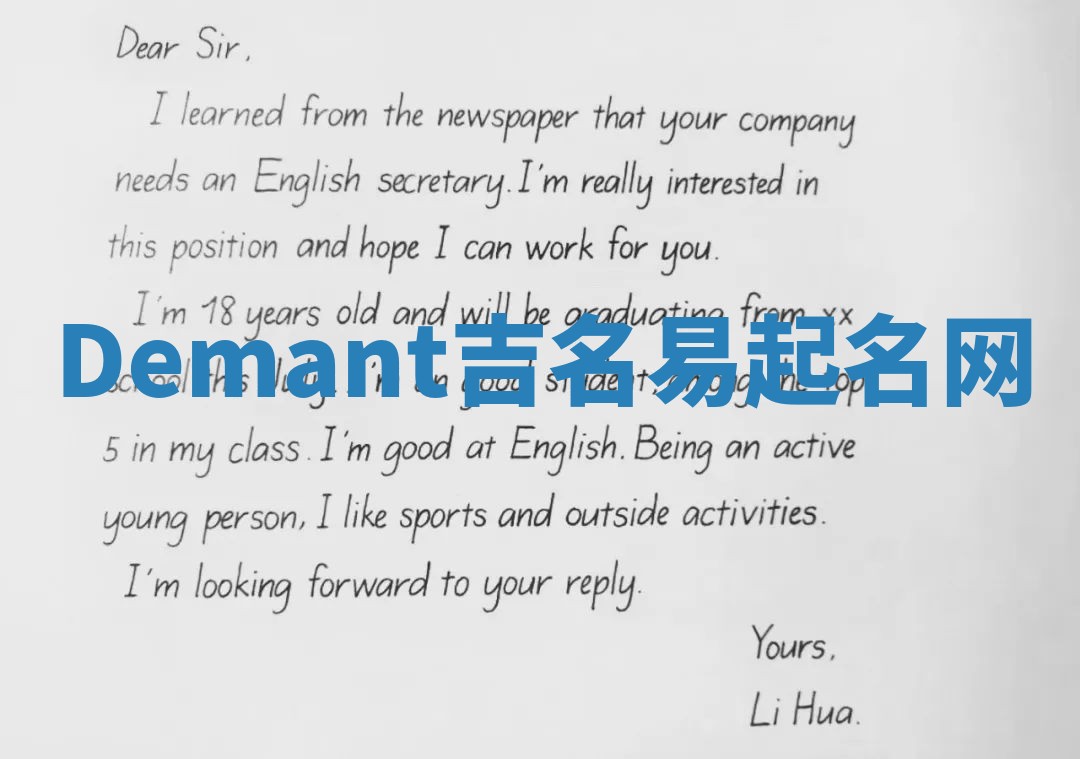 Dear Sir,
I learned from the newspaper that your company
needs an English secretary. I'm really interested in
this position and hope I can work for you.
I'm 18 years old and will be graduating from xx
Demant吉名易起名网
school this July. I'm an good student, among the top
5 in my class. I'm good at English. Being an active
young person, I like sports and outside activities.
I'm looking forward to your reply.
Yours,
Li Hua.